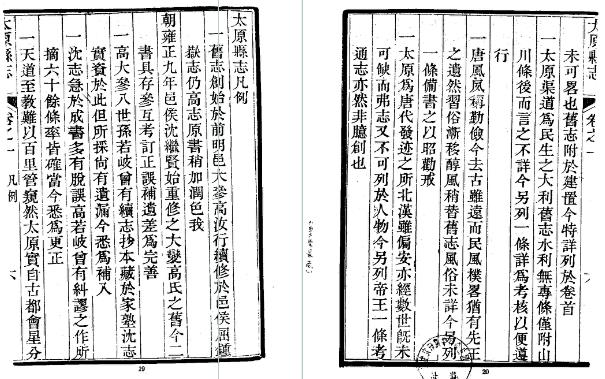 太原縣志凡例
一舊志創始於前明邑大參高汝行續修於邑侯屈鍾
嶽志仍高志原書稍加潤色我
朝雍正九年邑侯沈繼賢始重修之大變高氏之舊今二
書具存參互考訂正誤補遺差為完善
一高大參八世孫若岐曾有續志抄本藏於家塾沈志
實資於此但所採尚有遺漏今悉為補入
一沈志急於成書多有脫誤高若岐曾有糾謬之作所
摘六十餘條率皆確當今悉為更正
一天道至教難以百里管窺然太原實自古都會星分
太原縣志 卷之一 凡例 六
29
太原縣志 卷之一
未可畧也舊志附於建置今特詳列於卷首
一太原渠道為民生之大利舊志水利無專條僅附山
川條後而言之不詳今另列一條詳為考核以便遵
行
一唐風夙稱勤儉今去古雖遠而民風樸畧猶有先正
之遺然習俗漸移醇風稍替舊志風俗未詳今另列
一條備書之以昭勸戒
一太原為唐代發迹之所北漢雖偏安亦經數世旣未
可缺而弗志又不可列於人物今另列帝王一條考
通志亦然非臆創也
20